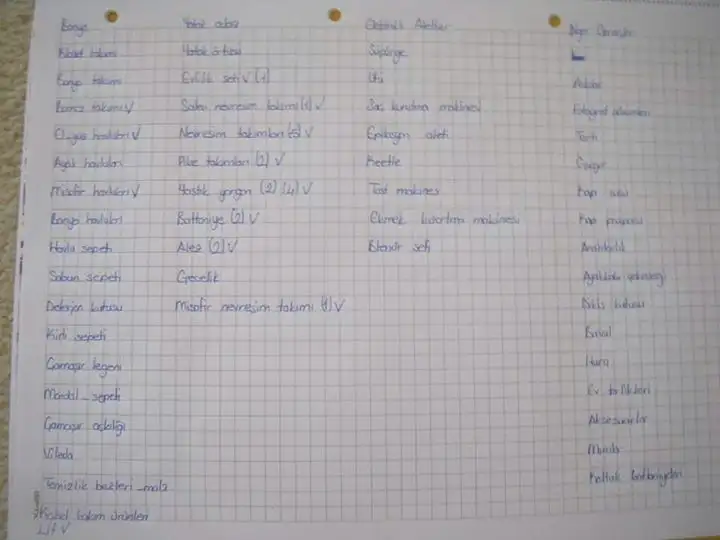 Banyo
Klozet takımı
Banyo takımı
Bornoz takımı √
El-yüz havluları √
Ayak havluları
Misafir havluları √
Banyo havluları
Havlu sepeti
Sabun sepeti
Deterjan kutusu
Kirli sepeti
Çamaşır legeni
Mandal sepeti
Çamaşır askılığı
Vileda
Temizlik bezleri
Kişisel bakım ürünleri
Lif √
Yatak odası
Yatak örtüsü
Evlilik seti √ (1)
Saten nevresim takımı (1) √
Nevresim takımları √
Pike takımları (2) √
Yastık yorgan (2) (4) √
Battaniye (2) √
Alez (2) √
Gecelik
Misafir nevresim takımı √
Elektrikli Aletler
Süpürge
Ütü
Saç kurutma makinesi
Epilasyon aleti
Keetle
Tost makines
Ekmek kızartma makinesi
Blendır seti
Diğer
Fotoğraf
Tartı
Kapı
Kapı
Anahtarlık
Ayakkabı
Dikiş kutusu
Bavul
Hurç
Ev terlikleri
Aksesuarlar
Koltuk battaniyeleri